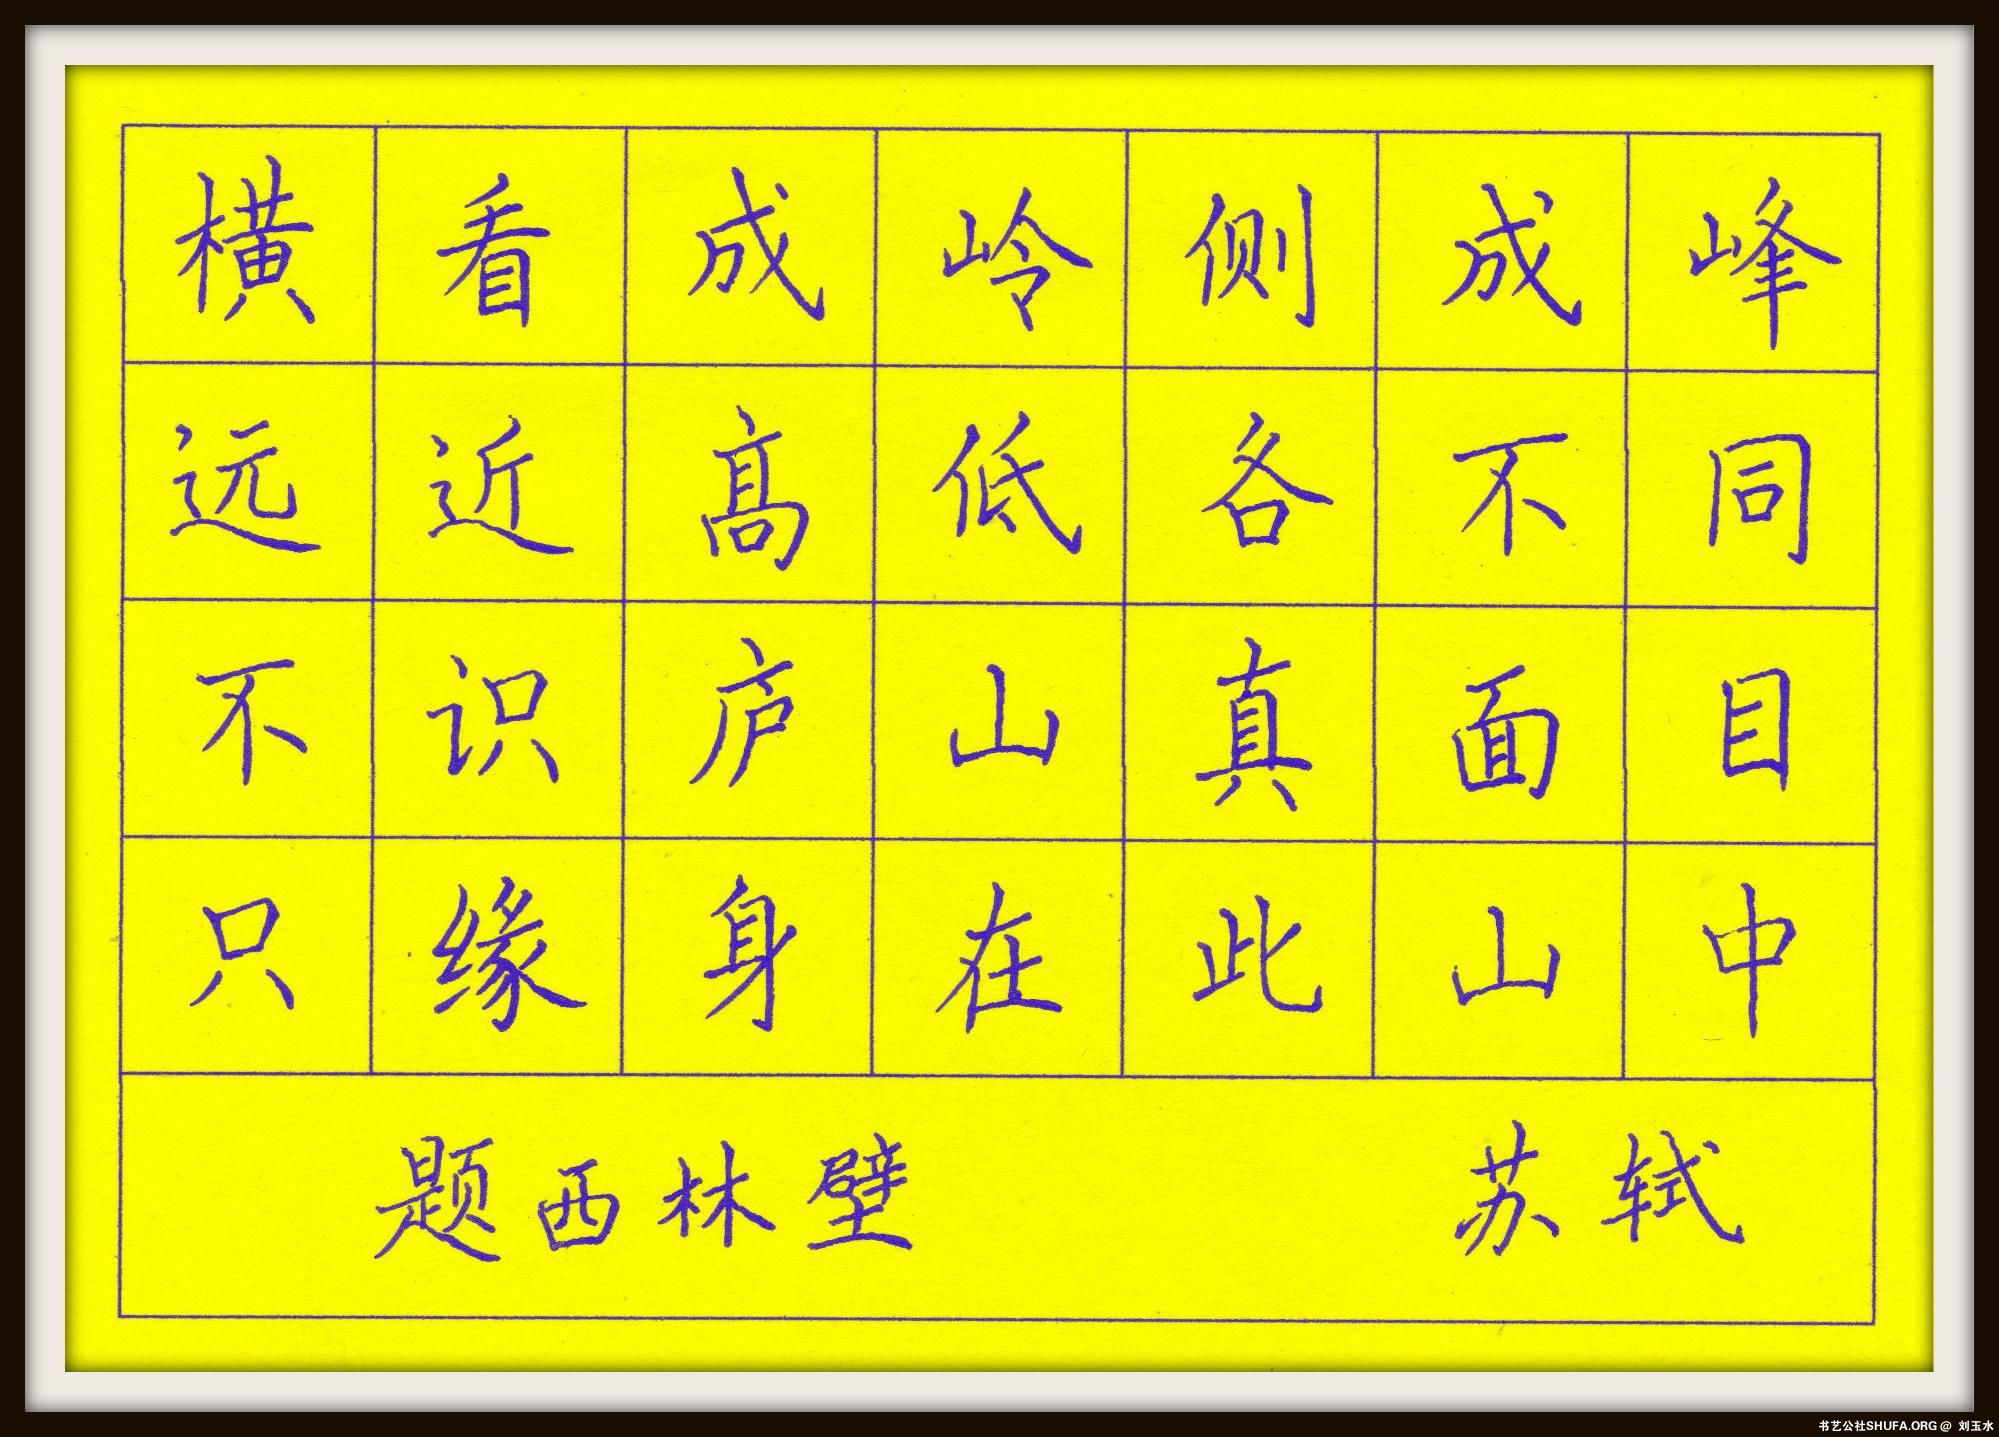 横看成岭侧成峰
远近高低各不同
不识庐山真面目
只缘身在此山中
题西林壁 苏轼
书艺公社SHUFA.ORG @ 刘玉水